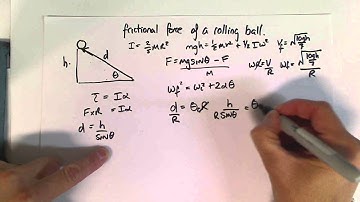 frictional force of a rolling ball.
I = 2/5 MR² mgh = 1/2 mv² + 1/2 Iω² V_f = √(10gh/7)
F = mgsinθ - F / M ω = V/R ω_f = √(10gh/7)/R
h d θ
τ = Iα
F×R = Iα
ω_f² = ω_i² + 2αθ
d = h/sinθ
d/R = θ h/Rsinθ = θ